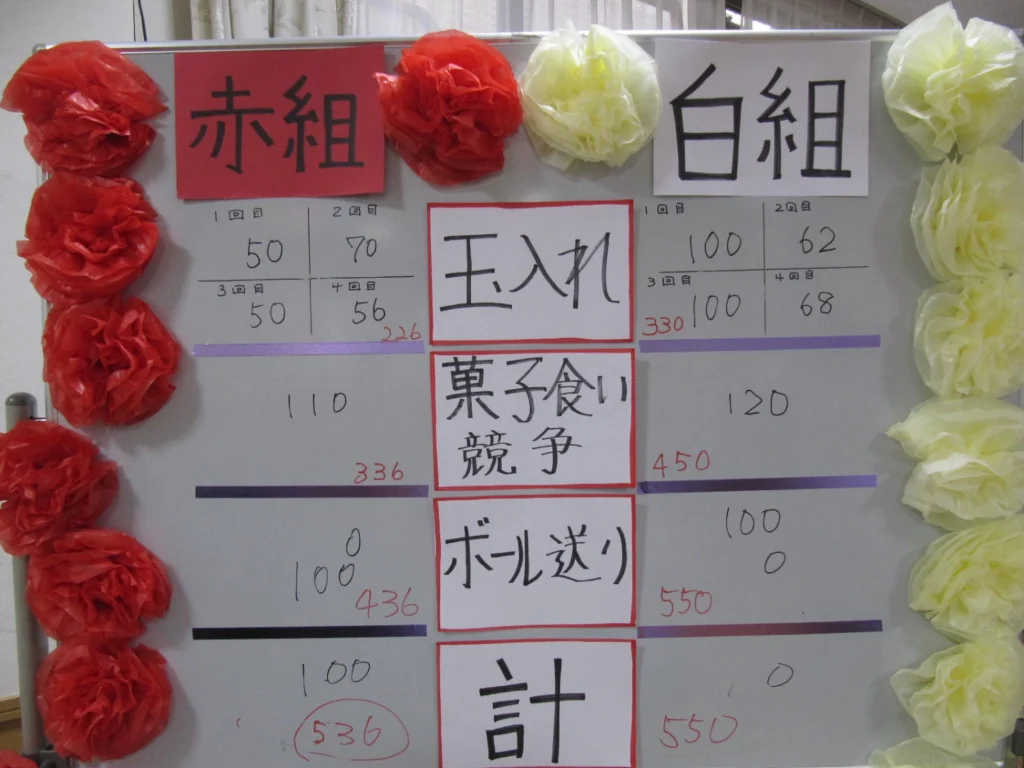 赤組
白組
1回目 2回目
50 70
3回目 4回目
50 56
226
玉入れ
1回目 2回目
100 62
3回目 4回目
100 68
330
110
336
菓子食い
競争
120
450
0
100
436
ボール送り
100
0
550
100
536
計
0
550